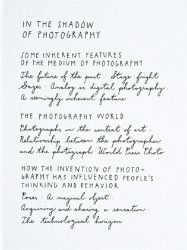 IN THE SHADOW
OF PHOTOGRAPHY
SOME INHERENT FEATURES
OF THE MEDIUM OF PHOTOGRAPHY
The future of the past. Stage fright.
Gazes. Analog vs digital photography.
A seemingly inherent feature
THE PHOTOGRAPHY WORLD
Photographs in the context of art.
Relationship between the photographer
and the photograph. World Press Photo
HOW THE INVENTION OF PHOTO-
GRAPHY HAS INFLUENCED PEOPLE'S
THINKING AND BEHAVIOR
Poses. A magical object.
Acquiring and sharing a sensation
The technological horizon